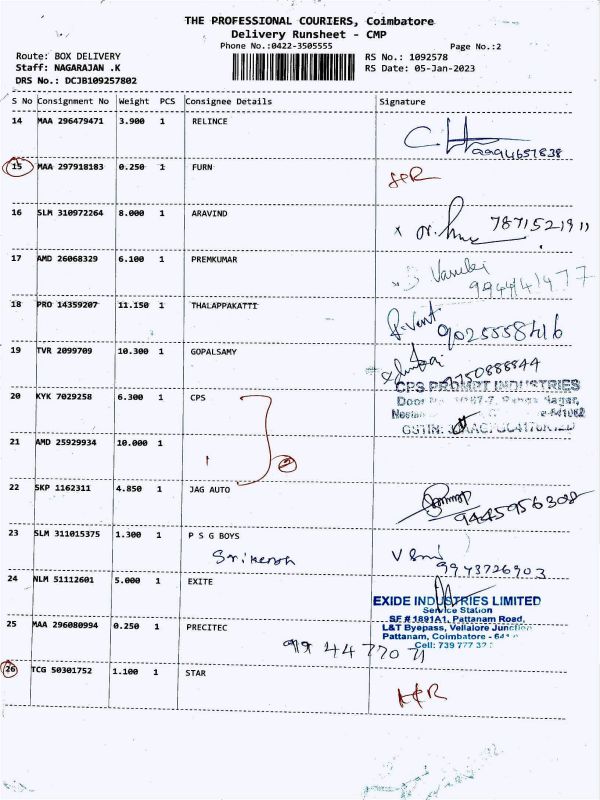 THE PROFESSIONAL COURIERS, Coimbatore
Delivery Runsheet - CMP
Phone No.:0422-3505555
Page No.:2
Route: BOX DELIVERY
RS No.: 1092578
Staff: NAGARAJAN .K
RS Date: 05-Jan-2023
DRS No.: DCJB109257802
S No Consignment No Weight PCS Consignee Details Signature
14 MAA 296479471 3.900 1 RELINCE
15 MAA 297918183 0.250 1 FURN
16 SLM 310972264 8.000 1 ARAVIND
7871521911
17 AMD 26068329 6.100 1 PREMKUMAR
18 PRO 14359207 11.150 1 THALAPPAKATTI
9025558416
19 TVR 2099709 10.300 1 GOPALSAMY
9750888844
CPS PROMPT INDUSTRIES
20 KYK 7029258 6.300 1 CPS
21 AMD 25929934 10.000 1
22 SKP 1162311 4.850 1 JAG AUTO
9445956308
23 SLM 311015375 1.300 1 P S G BOYS
9943726903
24 NLM 51112601 5.000 1 EXITE
EXIDE INDUSTRIES LIMITED
Service Station
SF # 1891A1, Pattanam Road,
L&T Byepass, Vellalore Junction
Pattanam, Coimbatore -
Cell: 739 777
25 MAA 296080994 0.250 1 PRECITEC
26 TCG 50301752 1.100 1 STAR